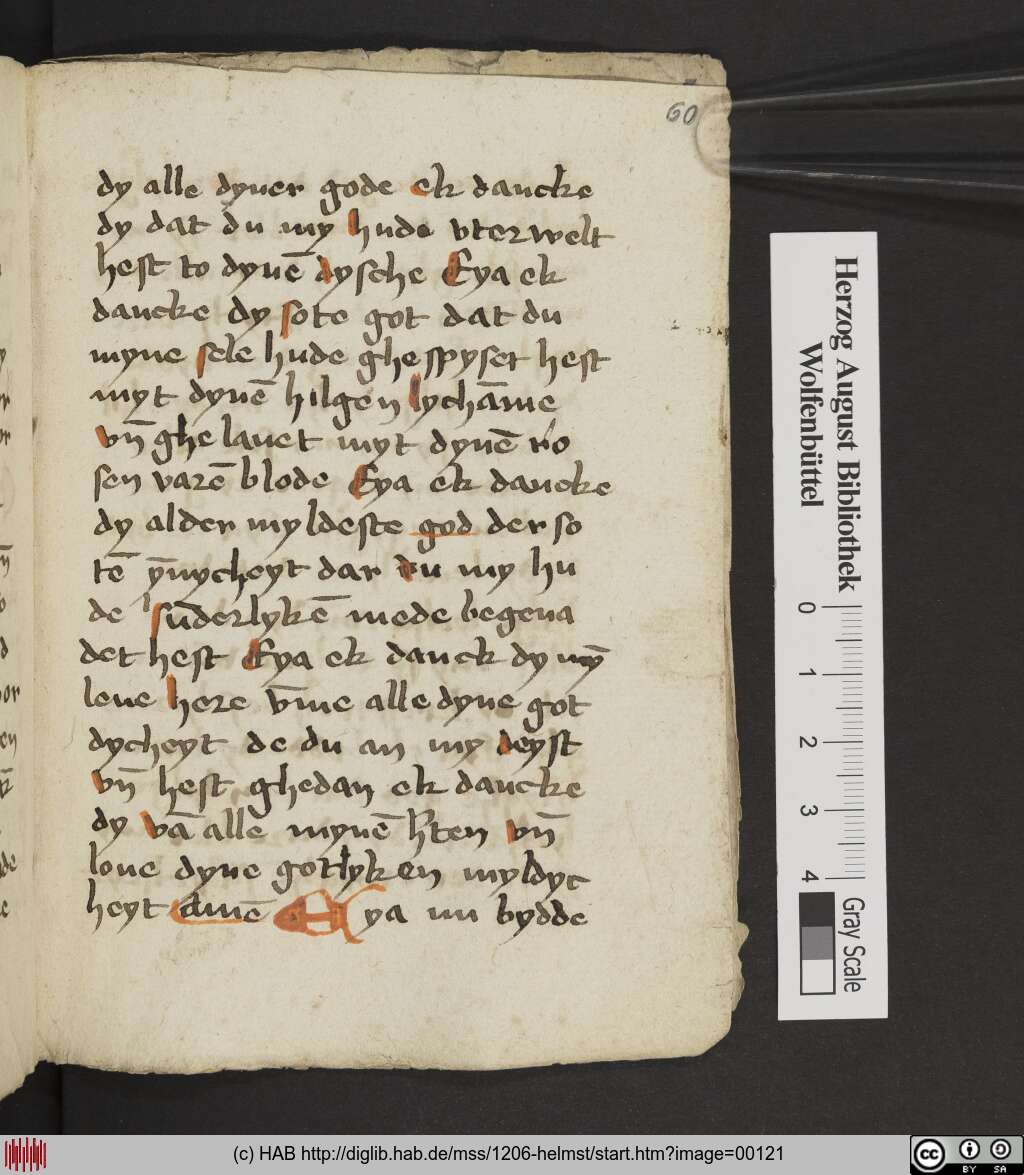 60
dy alle dyner gode ek dancke
dy dat du my hude vterwelt
hest to dynē dysche Eya ek
dancke dy sote got dat du
myne sele hude ghespyset hest
myt dynē hilgen lychāme
vn̄ ghelauet myt dynē ro
sen varē blode Eya ek dancke
dy alder myldeste god der so
tē ynnycheyt dar du my hu
de sūderlykē mede begena
det hest Eya ek danck dy my
leue here v̄me alle dyne got
dycheyt de du an my deyst
vn̄ hest ghedan ek dancke
dy vā alle mynē h'ten vn̄
loue dyne gotlyken myldyc
heyt amē Eya nu bydde
Herzog August Bibliothek
Wolfenbüttel
0 1 2 3 4
Gray Scale
(c) HAB http://diglib.hab.de/mss/1206-helmst/start.htm?image=00121
cc BY SA